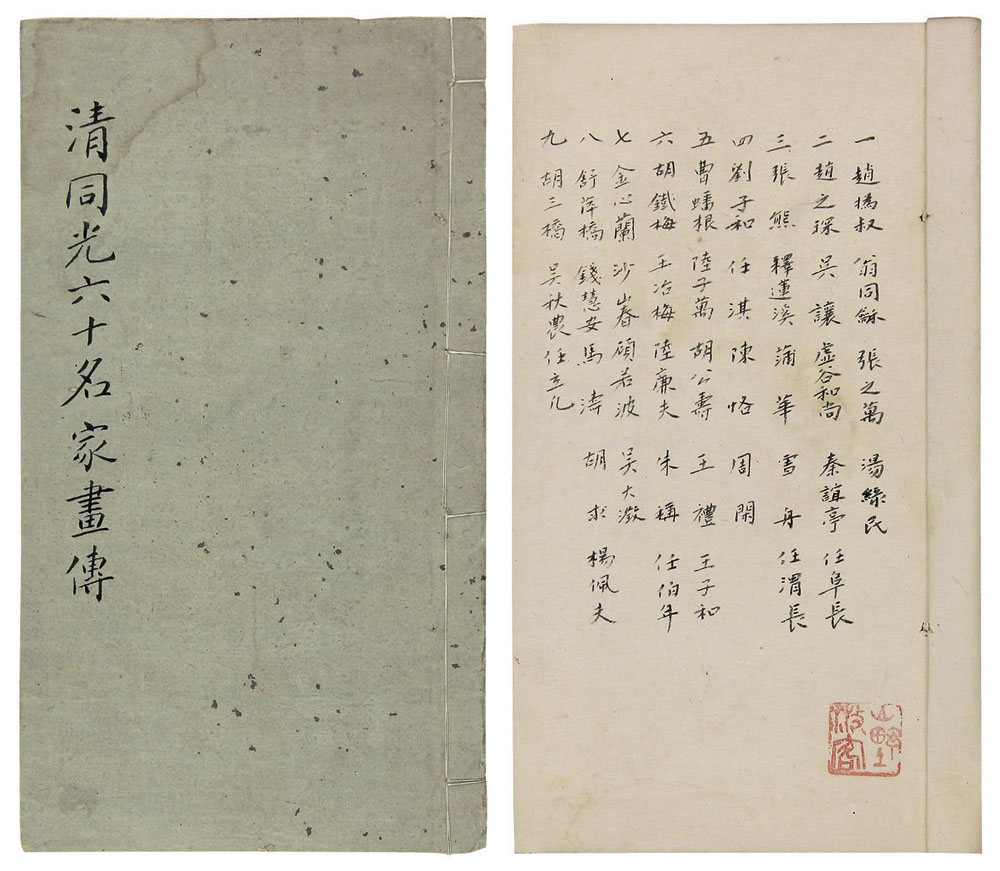 清同光六十名家畫傳
一 趙撝叔 翁同龢 張之萬 湯綠民
二 趙之琛 吳讓 虛谷和尚 秦誼亭 任阜長
三 張熊 釋蓮溪 蒲華 雪舟 任渭長
四 劉子和 任淇 陳恪 周閑
五 曹蟠根 陸子萬 胡公壽 王禮 王子和
六 胡鐵梅 王冶梅 陸廉夫 朱稱 任伯年
七 金心蘭 沙山春 顧若波 吳大澂
八 舒萍橋 錢慧安 馬濤 胡求 楊佩夫
九 胡三橋 吳秋農 任立凡